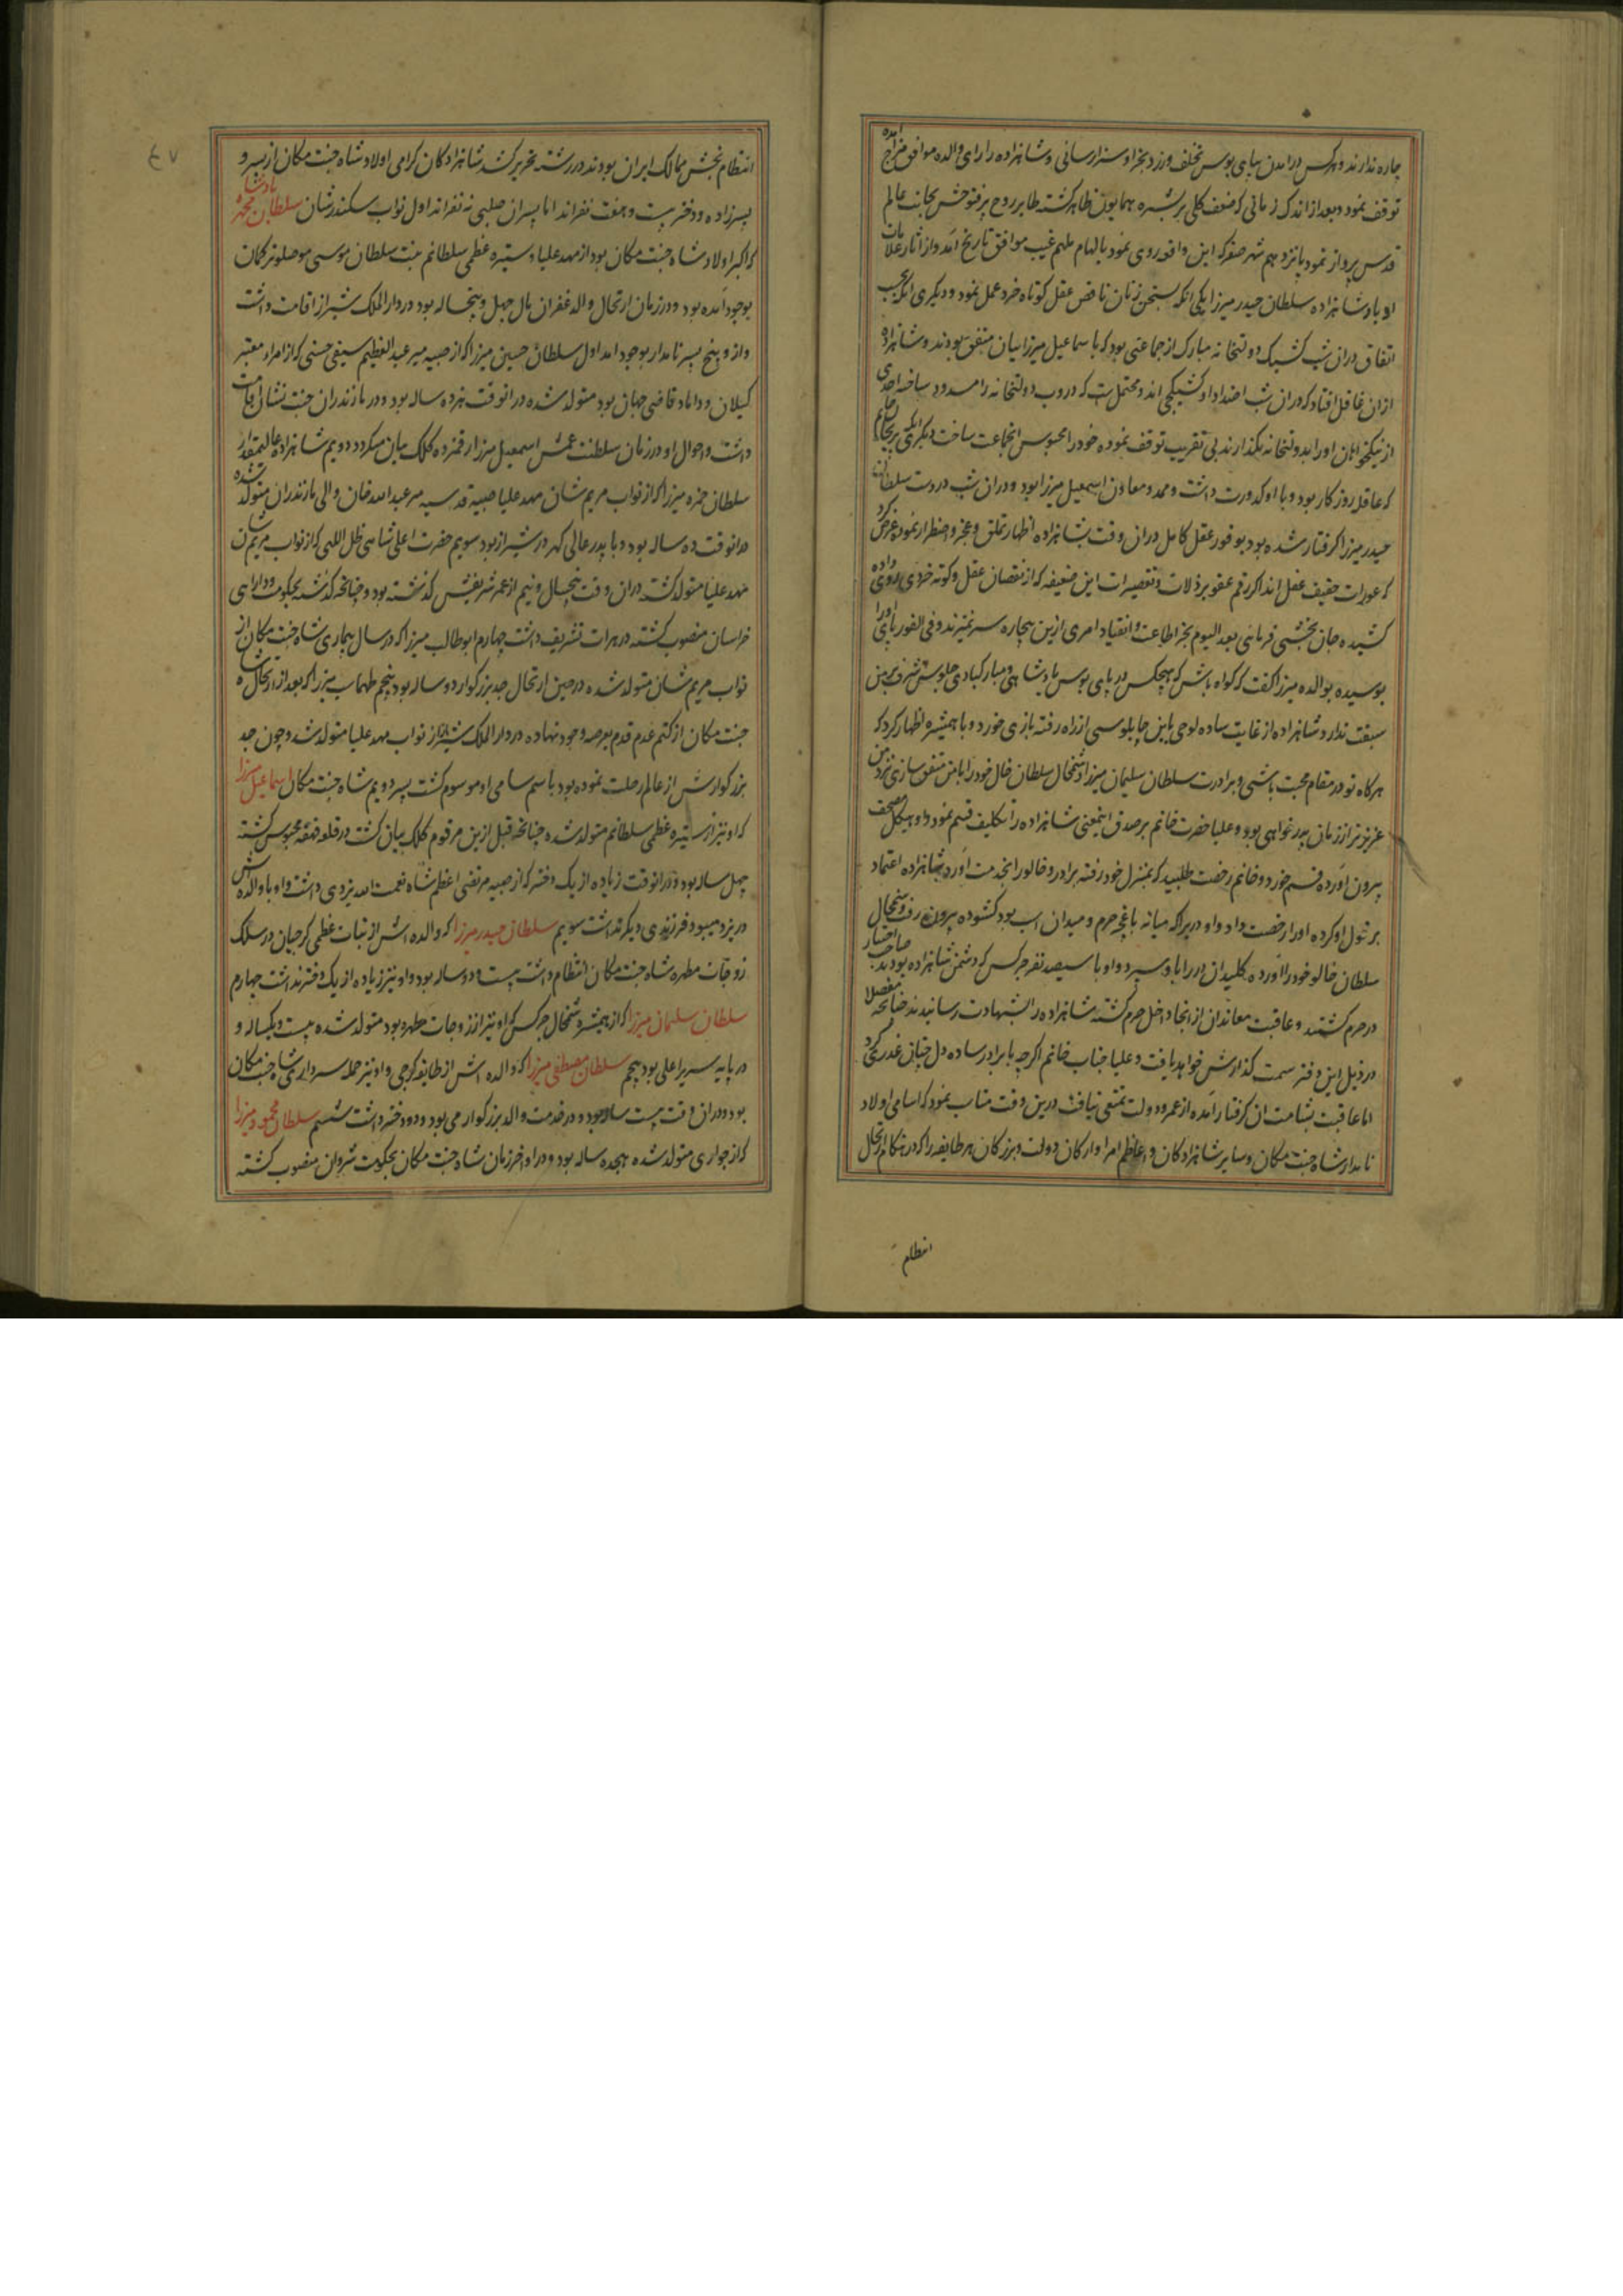 چاره ندارند و هرکس در امدن بپای بوس تخلف ورزد بجزا و سزا رسانی و شاهزاده را رای والده موافق مزاج امده
توقف نمود و بعد از اندک زمانی که ضعف کلی بر بشره همایون ظاهر کشته طایر روح پر فتوحش بجانب عالم
قدس پرواز نمود پانزدهم شهر صفر که این واقعه روی نمود بالهام ملهم غیب موافق تاریخ آمد و از اثار علامات
ادبار شاهزاده سلطان حیدر میرزا یکی انکه بسخن زنان ناقص عقل کوتاه خرد عمل نمود و دیگری انکه بحسب
اتفاق دران شب کشیک دولتخانه مبارک از جماعتی بود که با سماعیل میرزاییان متفق بودند و شاهزاده
ازان غافل افتاد که دران شب اضداد او کشیکچی اند و محتمل است که دروب دولتخانه را مسدود ساخته احدی
از نیکخواهان او را بدولتخانه نکذارند بی تقریب توقف نموده خود را محبوس انجماعت ساخت دیگری انکه پریخان خانم
که عاقله روزکار بود و با او کدورت داشت و ممد و معاون اسمعیل میرزا بود و دران شب در دست سلطان
حیدر میرزا گرفتار شده بود بوفور عقل کامل دران وقت بشاهزاده اظهار تملق و عجز و اضطرار نموده عرض کرد
که عورات خفیف عقل اند اکر رقم عفو بر ذلات و تقصیرات این ضعیفه که از نقصان عقل و کوته خردی روی داده
کشیده جان بخشی فرمائی بعد الیوم بجز اطاعت و انقیاد امری ازین بیچاره سر نمیزند و فی الفور پای او را
بوسیده بوالده میرزا گفت که گواه باش که هیچکس در پای بوس پادشاهی و مبارکبادی جلوس شرف بر من
سبقت ندارد شاهزاده از غایت ساده لوحی باین چاپلوسی از راه رفته بازی خورد و با همشیره اظهار کرد که
هرکاه تو در مقام محبت باشی و برادرت سلطان سلیمان میرزا و شمخال سلطان خال خود را با من متفق سازی نزد من
عزیزتر از زمان پدر خواهی بود و علیا حضرت خانم بر صدق اینمعنی شاهزاده را تکلیف قسم نمود و او هیکل مصحف
بیرون آورده قسم خورد و خانم رخصت طلبید که بمنزل خود رفته برادر و خالو را بخدمت اورد شاهزاده اعتماد
بر قول او کرده او را رخصت داد و او دریرا که میانه باغچه حرم و میدان اسب بود کشوده بیرون رفت و شمخال
سلطان خالو خود را آورده کلیدان در را باو سپرد و او با سیصد نفر چرکس که دشمن شاهزاده بودند صاحب اختیار
در حرم گشتند و عاقبت معاندان از انجا داخل حرم کشته شاهزاده را بشهادت رسانیدند چنانچه مفصلا
در ذیل این دفتر سمت گذارش خواهد یافت و علیا جناب خانم اگرچه با برادر ساده دل چنانی غدری کرد
اما عاقبت بشامت ان گرفتار آمده از عمر و دولت تمتعی نیافت درین وقت مناسب نمود که اسامی اولاد
نامدار شاه جنت مکان و سایر شاهزادکان و اعاظم امرا و ارکان دولت و بزرکان هر طایفه را که در هنکام ارتحال
انتظام
٤٧
انتظام بخش ممالک ایران بودند در رشته تحریر کشد شاهزادکان کرامی اولاد شاه جنت مکان از پسر و
پسرزاده و دختر بیست و هفت نفراند اما پسران صلبی نه نفراند اول نواب سکندر شان سلطان محمد پادشاه
که اکبر اولاد شاه جنت مکان بود از مهد علیا و ستیره عظمی سلطانم بنت سلطان موسی موصلو ترکمان
بوجود آمده بود و در زمان ارتحال والد غفران مآل چهل و پنجساله بود در دار الملک شیراز اقامت داشت
و ازو پنج پسر نامدار بوجود امد اول سلطان حسین میرزا که از صبیه میر عبد العظیم سیفی حسنی که از امراء معتبر
گیلان و داماد قاضی جهان بود متولد شده در انوقت نوزده ساله بود و در مازندران جنت نشان اقامت
داشت و احوال او در زمان سلطنت عمش اسمعیل میرزا رقمزده کلک بیان میکردد دویم شاهزاده عالیمقدار
سلطان حمزه میرزا که از نواب مریم شان مهد علیا صبیه قدسیه میر عبدالله خان والی مازندران متولد شده
در انوقت ده ساله بود و با پدر عالی گهر در شیراز بود سویم حضرت اعلی شاهی ظل اللهی که از نواب مریم شان
مهد علیا متولد گشته دران وقت پنجسال و نیم از عمر شریفش گذشته بود و چنانچه گذشت بحکومت و دارایی
خراسان منصوب کشته در هرات تشریف داشت چهارم ابوطالب میرزا که در سال بیماری شاه جنت مکان از
نواب مریم شان متولد شده در حین ارتحال جد بزرکوار دو ساله بود پنجم طهماسب میرزا که بعد از ارتحال شاه
جنت مکان از کتم عدم قدم بعرصه وجود نهاده در دار الملک شیراز از نواب مهد علیا متولد شد و چون جد
بزرکوارش از عالم رحلت نموده بود باسم سامی او موسوم کشت پسر دویم شاه جنت مکان اسماعیل میرزا
که او نیز از ستیره عظمی سلطانم متولد شده چنانچه قبل ازین مرقوم کلک بیان کشت در قلعه قهقهه محبوس گشته
چهل ساله بود و در انوقت زیاده از یک دختر که از صبیه مرتضی اعظم شاه نعمت الله یزدی داشت و او با والده اش
در یزد میبود فرزندی دیگر نداشت سویم سلطان حیدر میرزا که والده اش از بنات عظمی کرجیان در سلک
زوجات مطهره شاه جنت مکان انتظام داشت بیست و دو ساله بود و او نیز زیاده از یک دختر نداشت چهارم
سلطان سلیمان میرزا که از همشیره شمخال چرکس که او نیز از زوجات مطهره بود متولد شده بیست و یکساله و
در پایه سریر اعلی بود پنجم سلطان مصطفی میرزا که والده اش از طایفه کرجی و او نیز حمله سرداری شاه جنت مکان
بود و دران وقت بیست ساله بود و در خدمت والد بزرکوار می بود و دو دختر داشت ششم سلطان محمود میرزا
که از جواری متولد شده هیجده ساله بود و در اواخر زمان شاه جنت مکان بحکومت شروان منصوب کشته